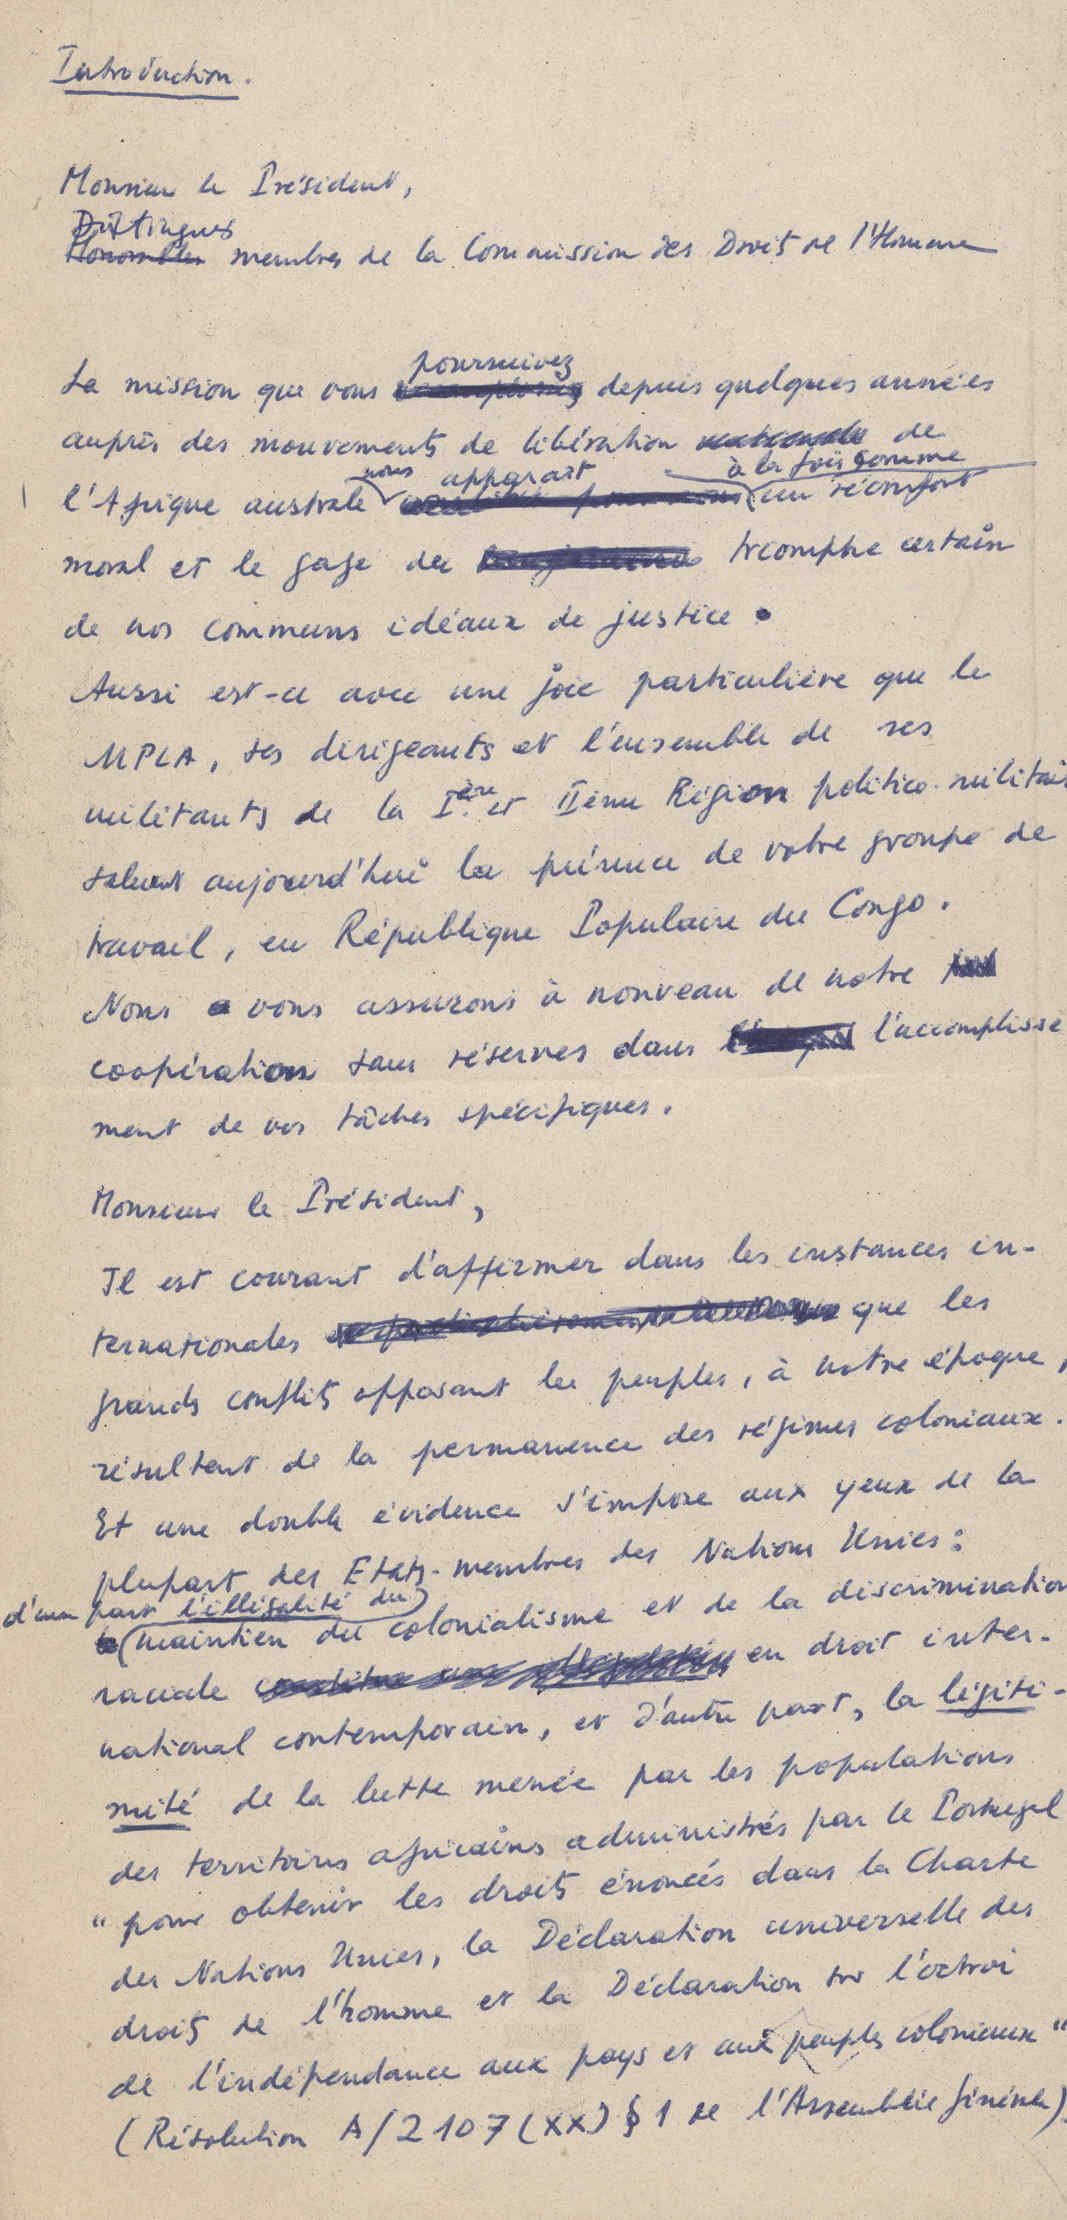 Introduction.
Monsieur le Président,
Distingués
Honorables membres de la Commission des Droits de l'Homme
poursuivez
La mission que vous depuis quelques années
auprès des mouvements de libération nationale de
nous apparaît à la fois comme
l'Afrique australe un réconfort
moral et le gage du triomphe certain
de nos communs idéaux de justice.
Aussi est-ce avec une joie particulière que le
MPLA, ses dirigeants et l'ensemble de ses
militants de la Ière et IIème Région politico-militaire
saluent aujourd'hui la présence de votre groupe de
travail, en République Populaire du Congo.
Nous vous assurons à nouveau de notre
coopération sans réserves dans l'accomplisse
ment de vos tâches spécifiques.
Monsieur le Président,
Il est courant d'affirmer dans les instances in-
ternationales que les
grands conflits opposant les peuples, à notre époque,
résultent de la permanence des régimes coloniaux.
Et une double évidence s'impose aux yeux de la
plupart des Etats-membres des Nations Unies:
d'une part l'illégalité du
maintien du colonialisme et de la discrimination
raciale en droit inter-
national contemporain, et d'autre part, la légiti-
mité de la lutte menée par les populations
des territoires africains administrés par le Portugal
"pour obtenir les droits énoncés dans la Charte
des Nations Unies, la Déclaration universelle des
droits de l'homme et la Déclaration sur l'octroi
de l'indépendance aux pays et aux peuples coloniaux"
(Résolution A/2107(XX) § 1 de l'Assemblée générale).